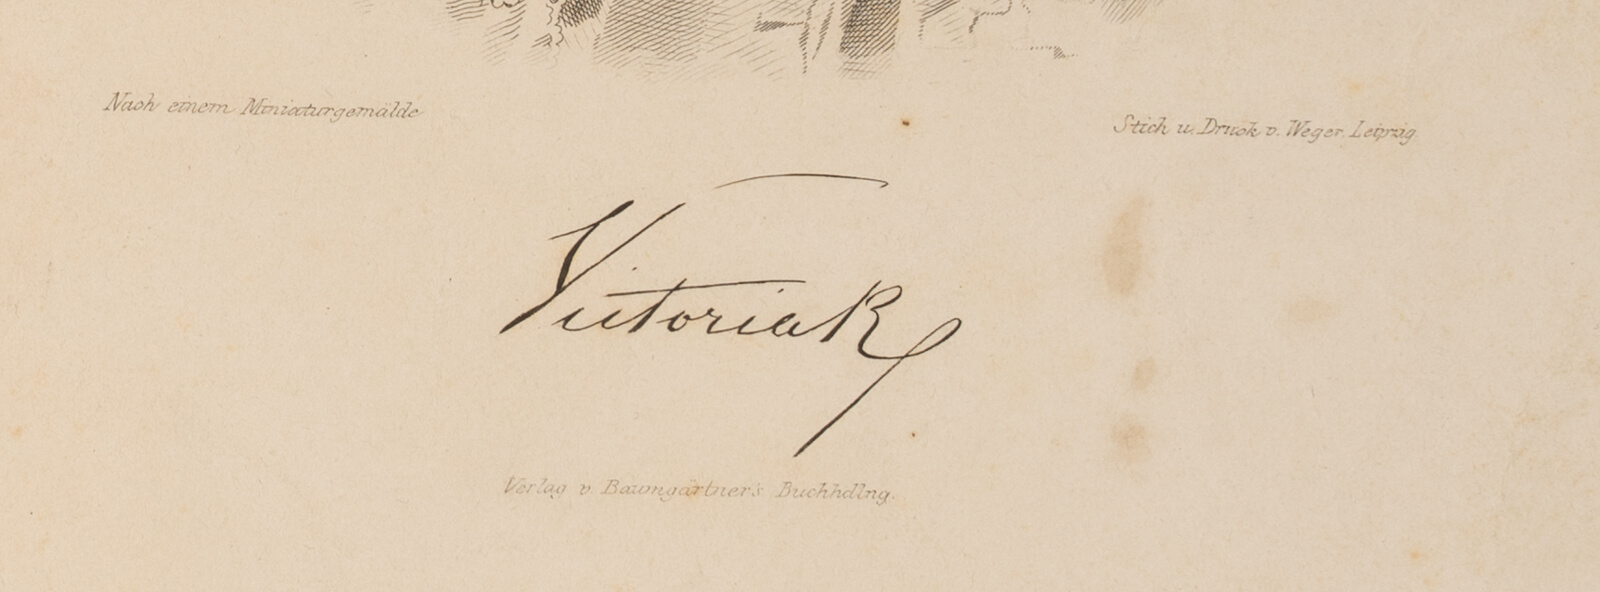 Nach einem Miniaturgemälde
Stich u. Druck v. Weger. Leipzig.
Victoria R
Verlag v. Baumgärtner's Buchhdlng.